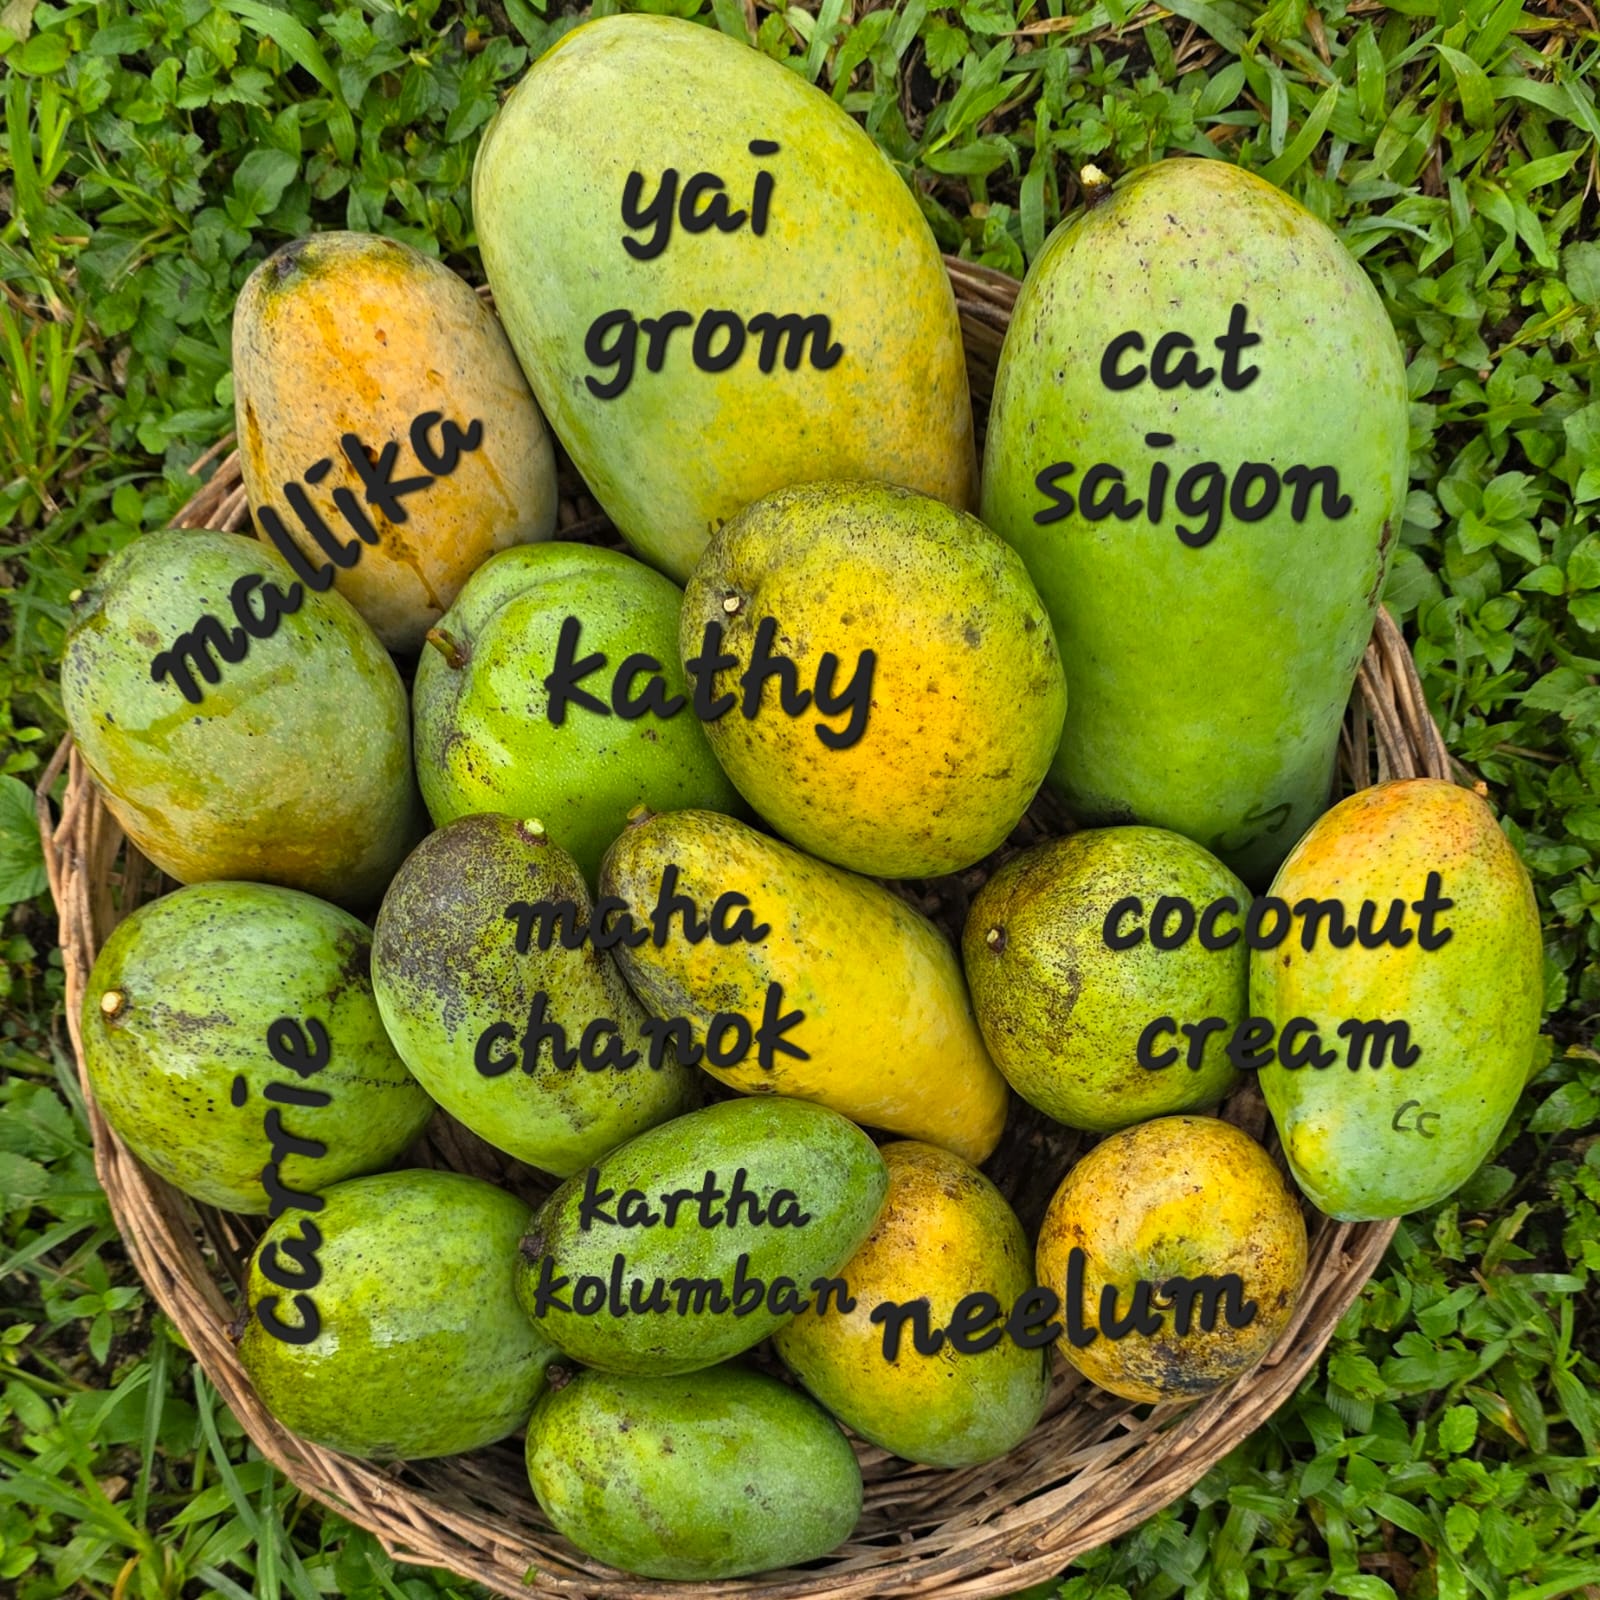 yai
grom
cat
saigon
mallika
kathy
maha
chanok
coconut
cream
Cc
carrie
kartha
kolumban
neelum